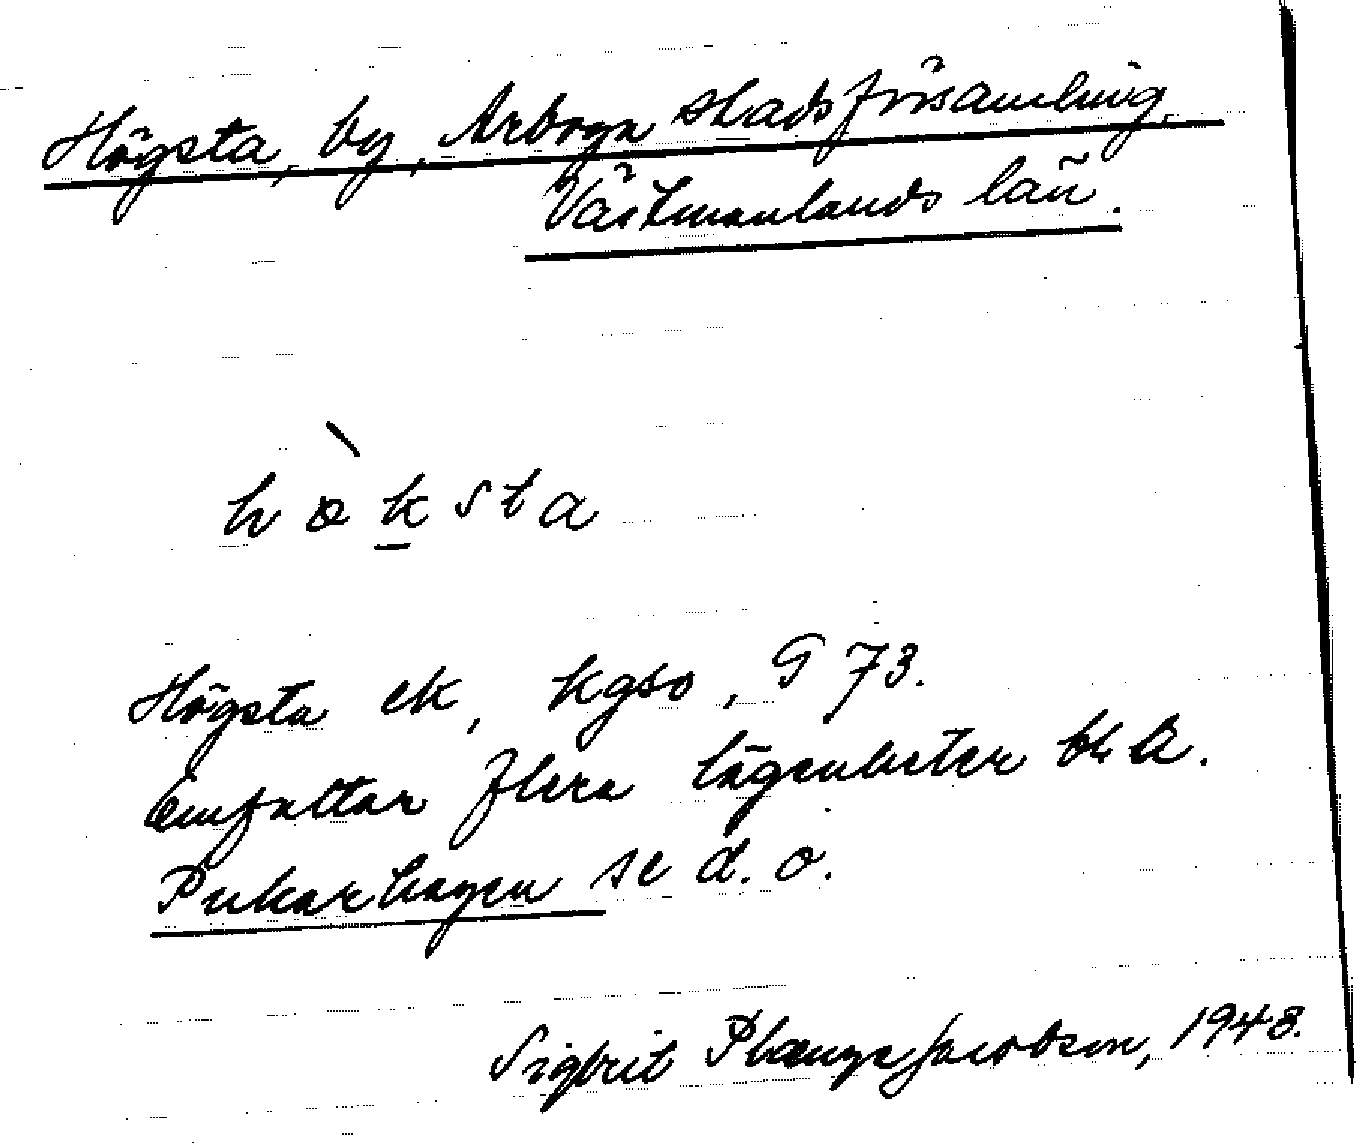 Högsta, by, Arboga stadsförsamling,
Västmanlands län.
hø̀ksta
Högsta ek, kgso, G 73.
Omfattar flera lägenheter bl. a.
Pukarhagen se d. o.
Sigbrit Plænge Jacobson, 1948.